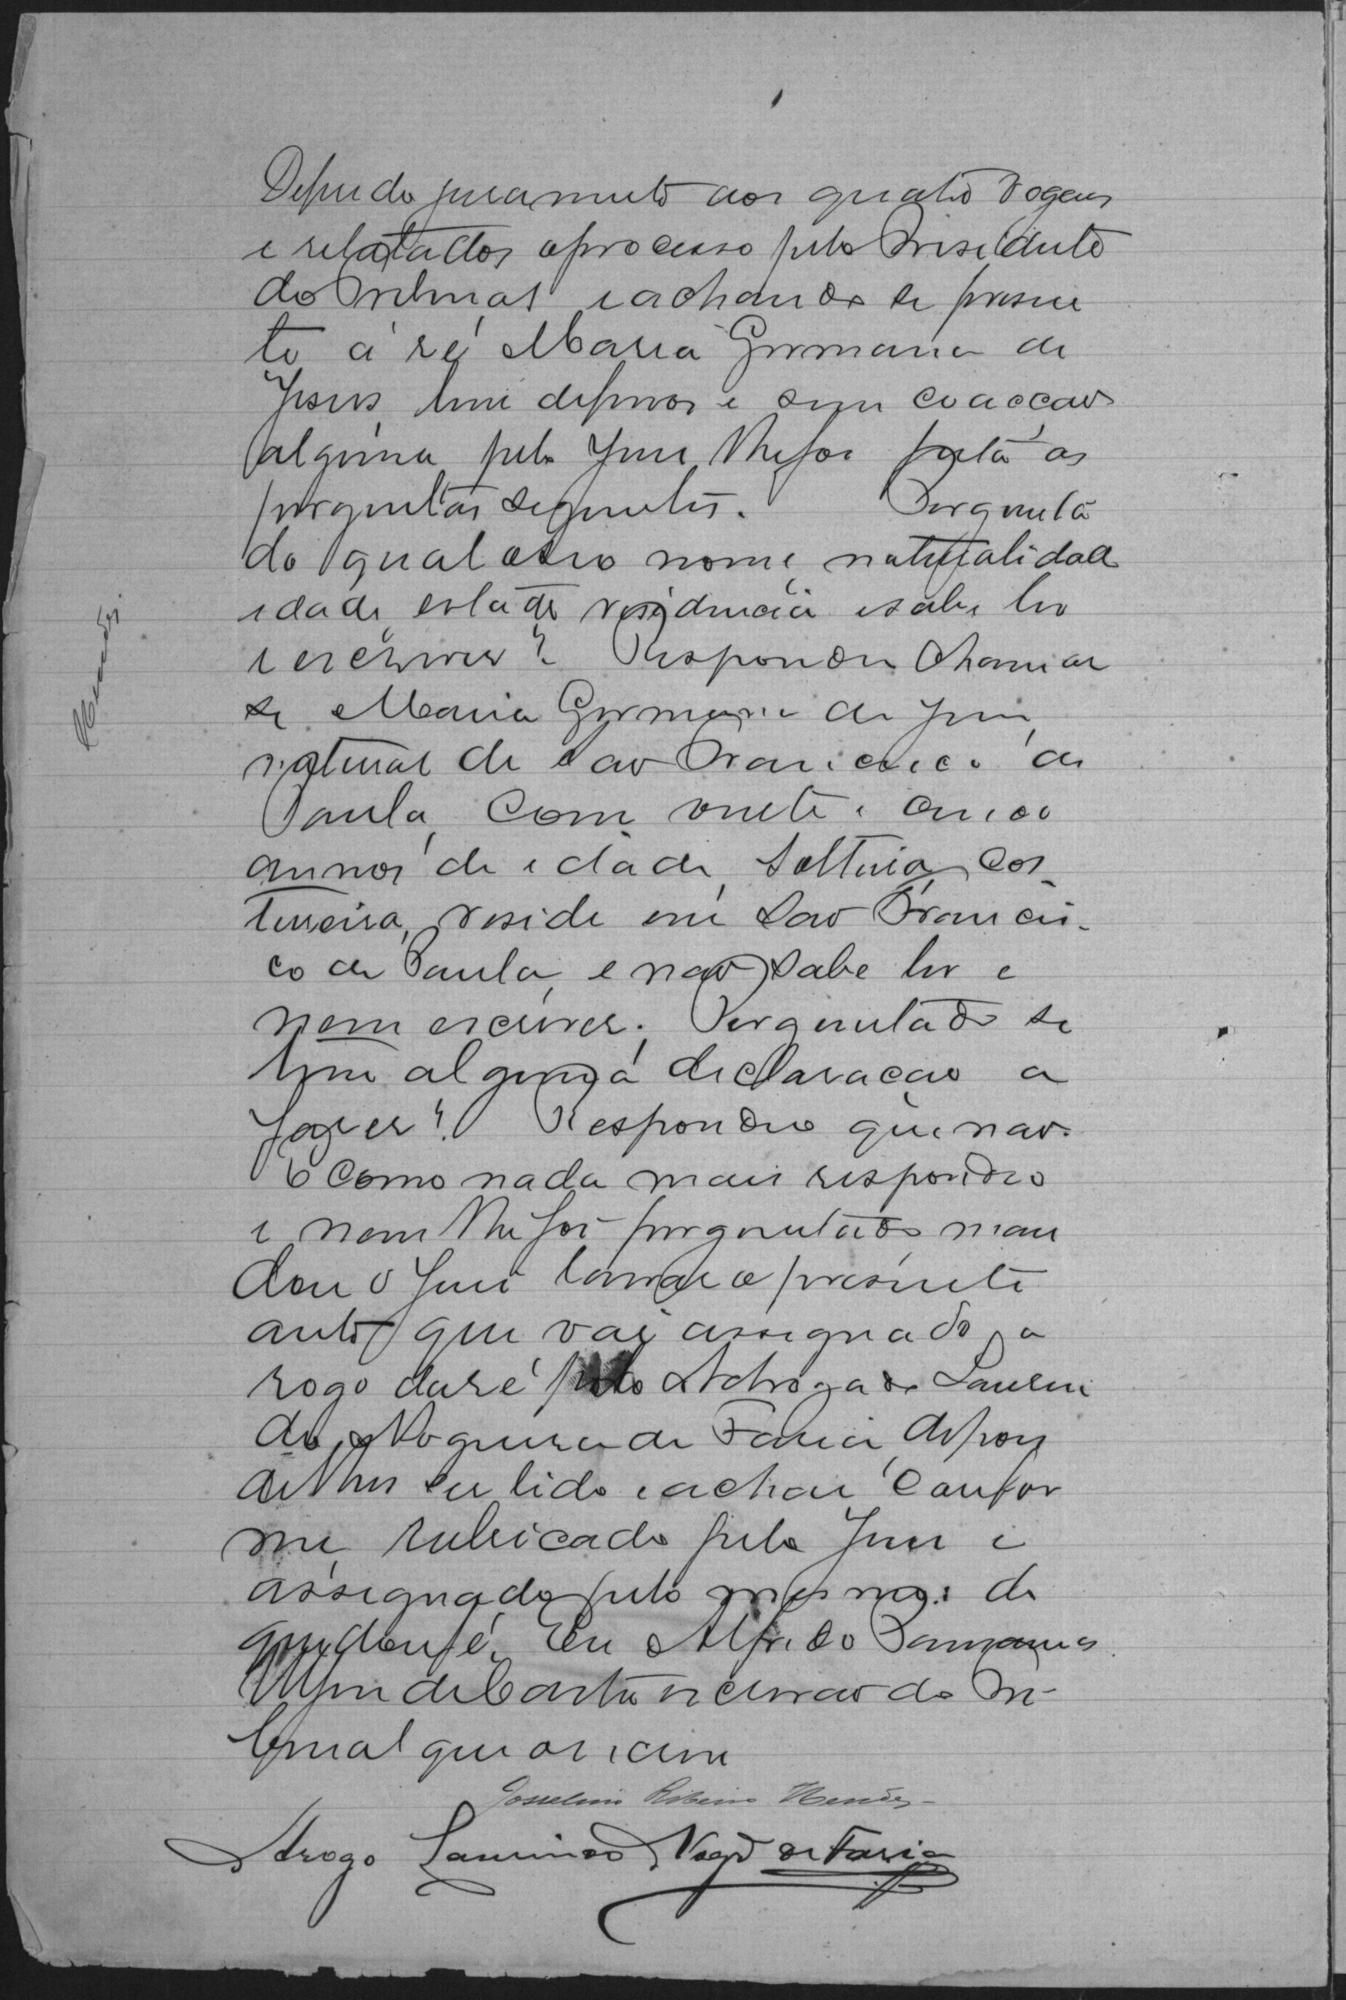 Deferido juramento aos quatro vogaes
e relatados o processo pelo Presidente
do Tribunal e achando se presen
te á ré Maria Germana de
Jesus livre de ferros e sem coacção
alguma pelo Juiz lhe foi feita as
perguntas seguintes. Pergunta
do qual o seo nome, naturalidade
idade, estado residencia e sabe ler
e escrever? Respondeu chamar
se Maria Germana de Jesus,
natural de São Francisco de
Paula, com vinte e cinco
annos de idade, solteira, cos
tureira, reside em São Francis-
co de Paula, e não sabe ler e
nem escrever. Perguntado se
tem alguma declaração a
fazer? Respondeo que não.
E como nada mais respondeo
e nem lhe foi perguntado man
dou o Juiz lavrar o presente
auto que vai assignado, a
rogo da ré pelo Advogado Laurin
do Nogueira de Faria, depois
de lhes ser lido e achar confor
me, rubricado pelo Juiz e
assignado pelo mesmo: de
que dou fé. Eu Alfredo
de Castro escrivão do Tri-
bunal que o escrevi
Josselino Ribeiro Mendes
Arogo Laurindo Nogr.ª de Faria
Mendes